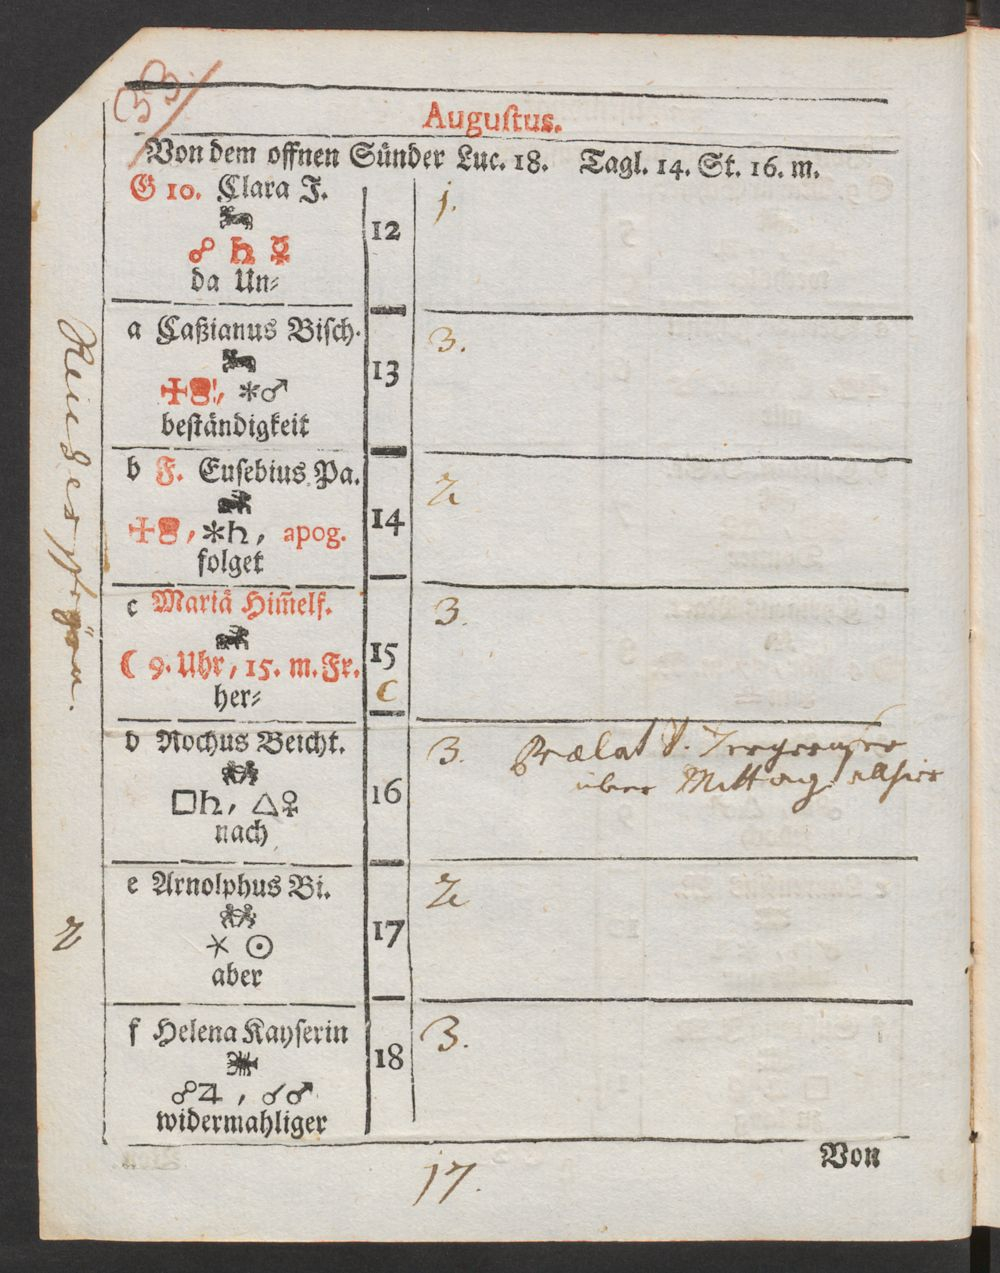 33.
Augustus.
Von dem offnen Sünder Luc. 18. Tagl. 14. St. 16. m.
G 10. Clara J.
12
1.
☍ ♄ ☿
da Un⸗
a Caßianus Bisch.
13
3.
⚹♂
beständigkeit
b F. Eusebius Pa.
14
2
⚹♄, apog.
folget
c Mariä Him̃elf.
15
3.
☾ 9. Uhr, 15. m. Fr.
C
her⸗
d Rochus Beicht.
16
3. Prælat
über Mittag allhier
□♄, △♀
nach
e Arnolphus Bi.
17
2
⚹ ☉
aber
f Helena Kayserin
18
3.
☍♃, ☌♂
widermahliger
Von
17.
2